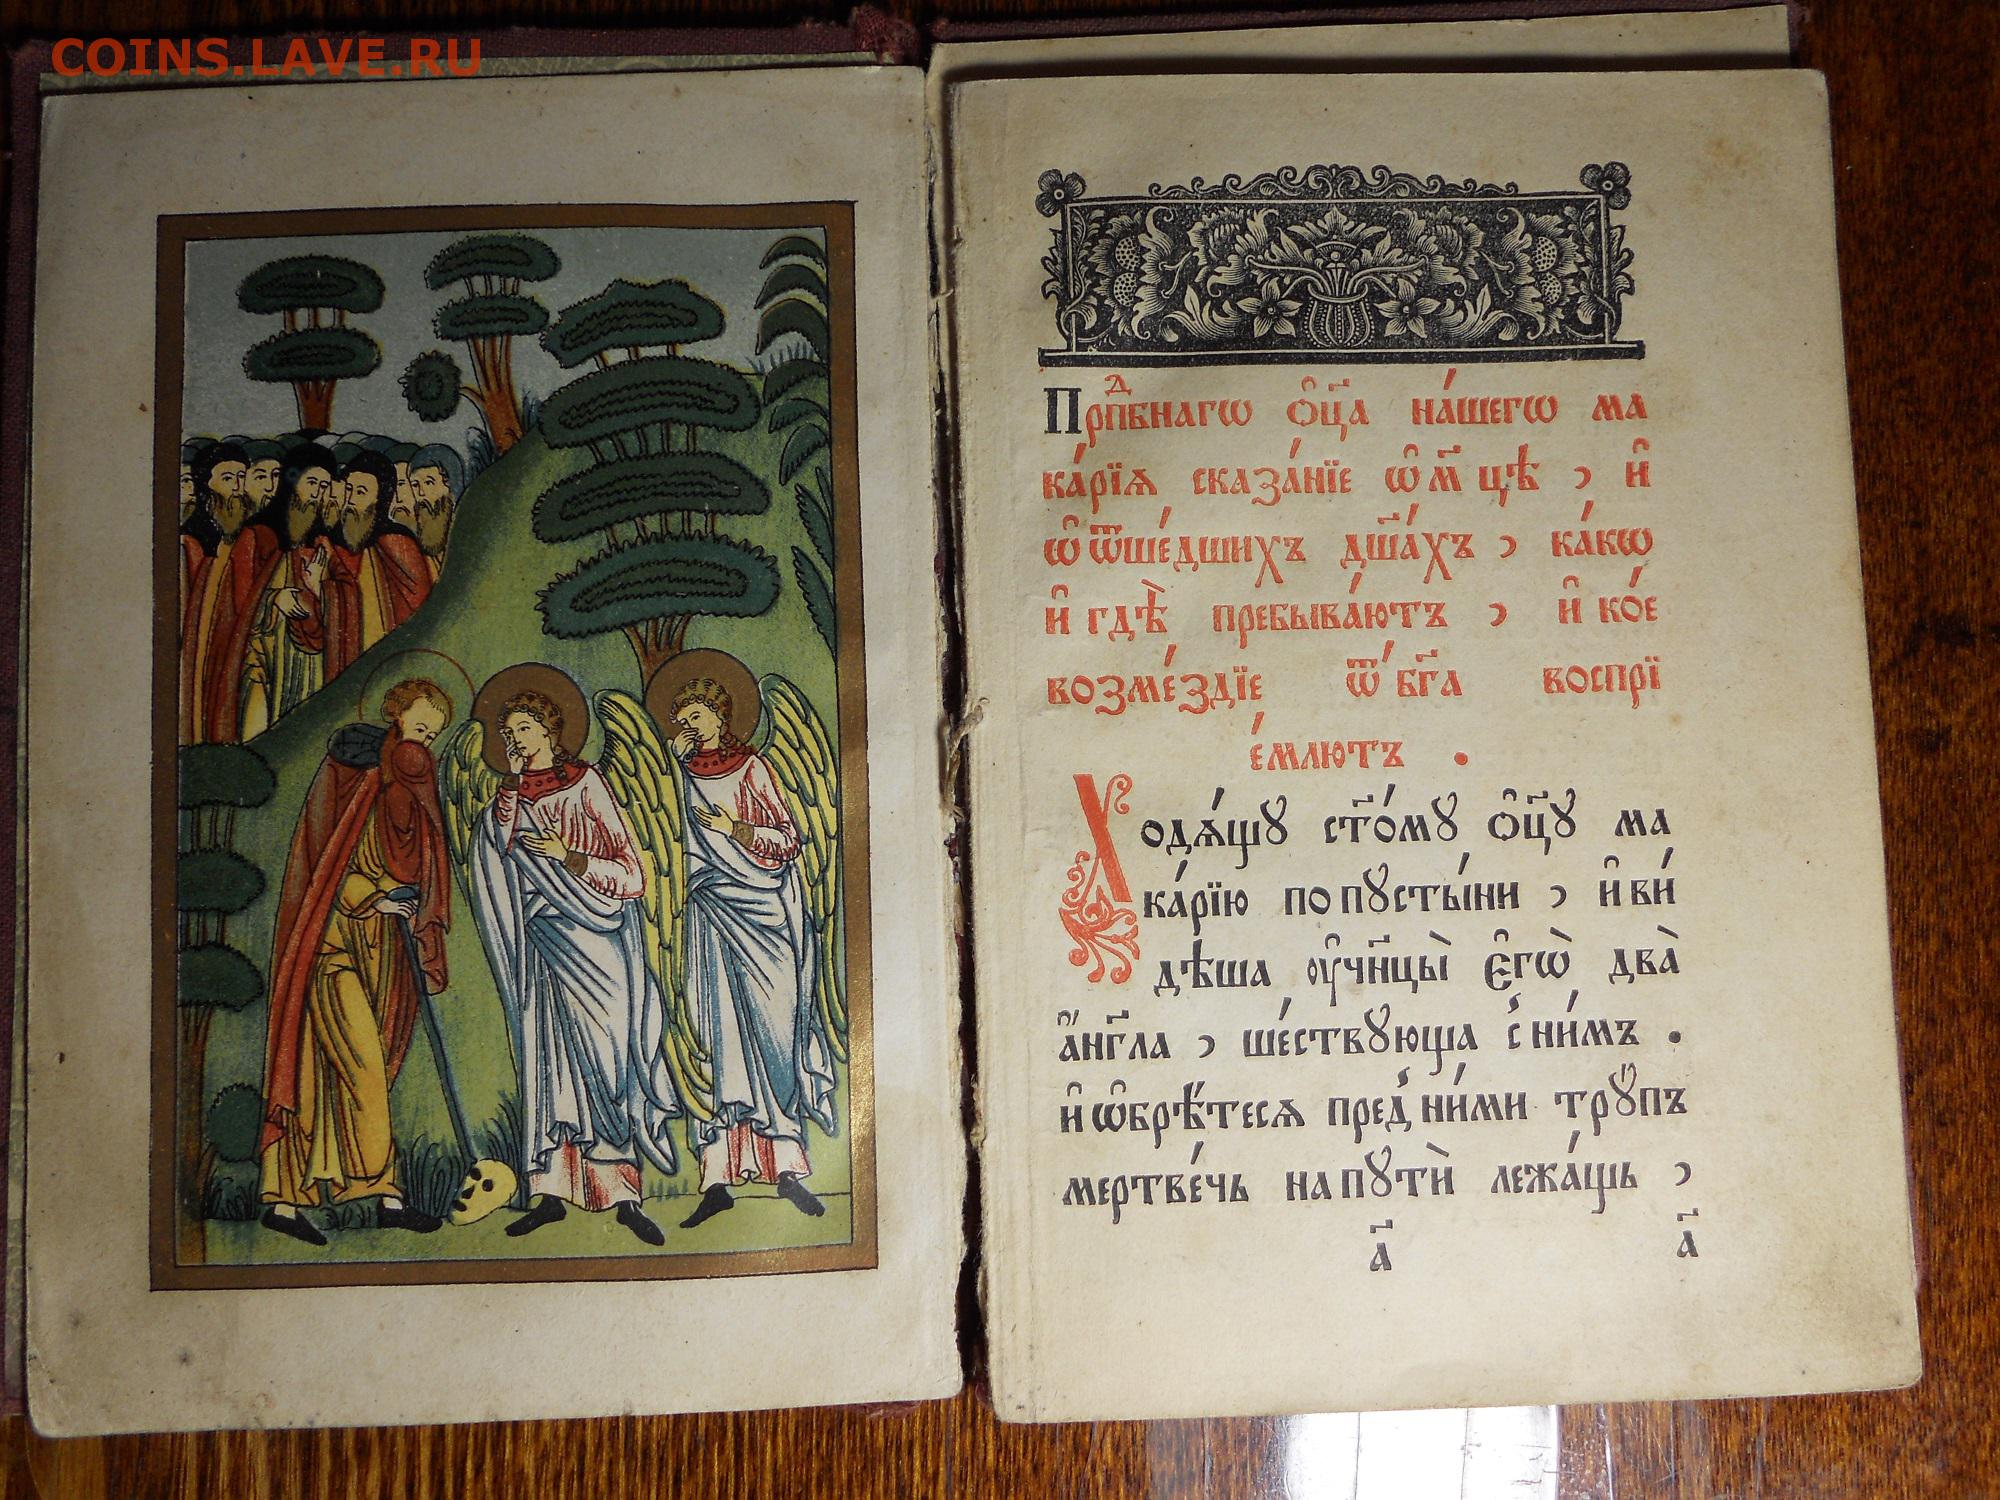 COINS.LAVE.RU
Прпⷣбнагѡ ѻ҆ц҃а на́шегѡ ма
ка́рїѧ сказа́нїе ѡ҆ м҃цѣ , и҆
ѡ҆ ѿше́дшихъ дш҃а́хъ , ка́кѡ
и҆ гдѣ̀ пребыва́ютъ , и҆ ко́е
возме́здїе ѿ бг҃а воспрї
е́млютъ .
Ходѧ́щꙋ ст҃о́мꙋ ѻ҆ц҃ꙋ ма
ка́рїю по пꙋсты́ни , и҆ ви́
дѣша ᲂу҆чн҃цы̀ є҆гѡ̀ два̀
а҆́нг҃ла , ше́ствꙋюща с ни́мъ .
и҆ ѡ҆брѣ́тесѧ пред ни́ми трꙋ́пъ
мертве́чь на пꙋтѝ лежа́щь ,
а҃ а҃